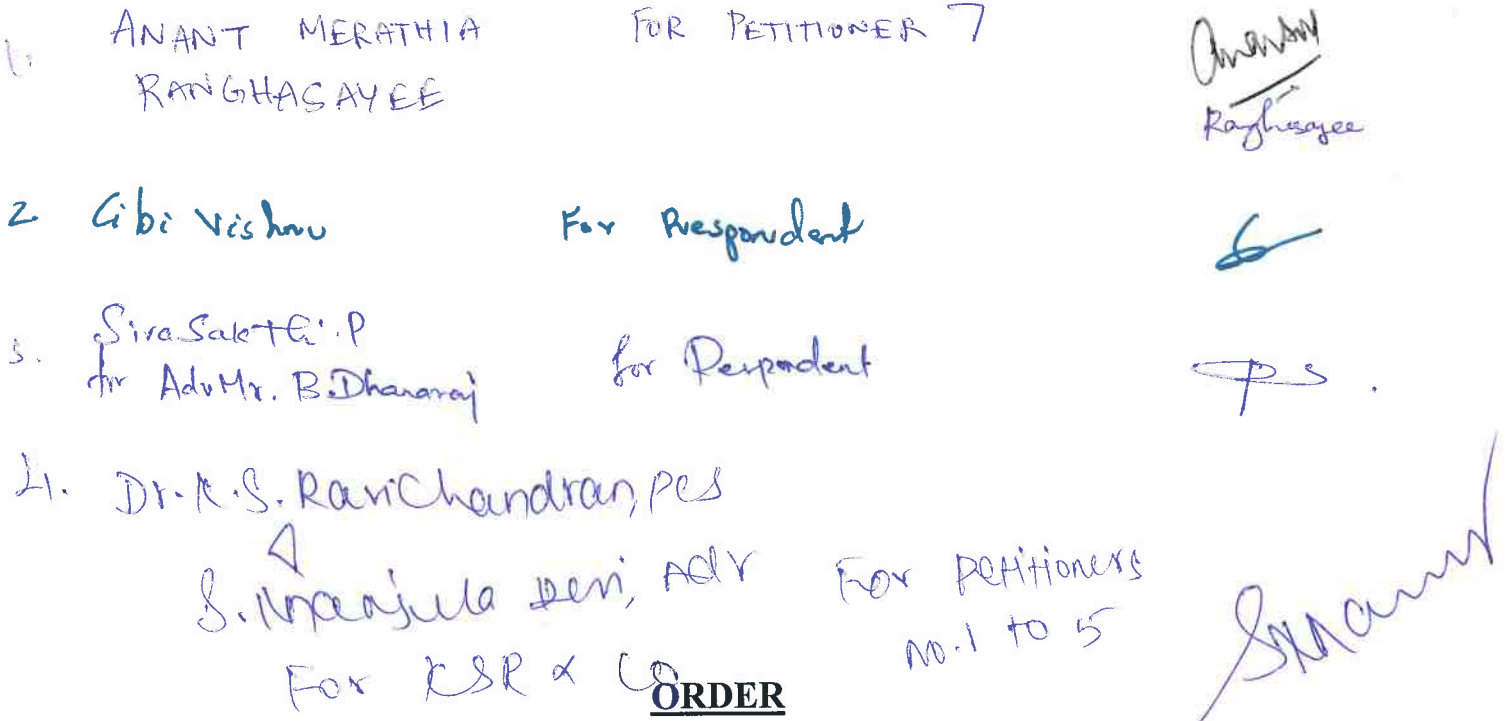 1. ANANT MERATHIA FOR PETITIONER 7
RANGHASAYEE
Ranghasayee
2 Cibi Vishnu For Respondent
3. Siva Sakthi.P
for Adv Mr. B.Dhanaraj for Respondent
P S .
4. Dr.K.S. RaviChandran, PCS
S. Manjula Devi, Adv For Petitioners
No.1 to 5
For KSR & Co
ORDER